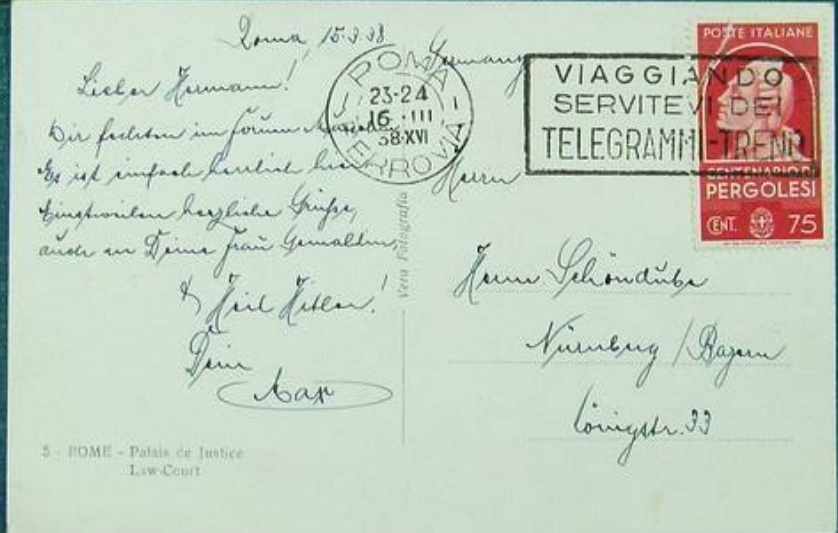 Roma, 15.3.38
Lieber Hermann!
Wir fechten im Forum
Es ist einfach herrlich hier
Einstweilen herzliche Grüsse,
auch an Deine Frau Gemahlin,
& Heil Hitler!
Dein
Max
5 - ROME - Palais de Justice
Law-Court
Vera Fotografia
ROMA
23-24
16 · III
38·XVI
FERROVIA
Germany
VIAGGIANDO
SERVITEVI DEI
TELEGRAMMI-TRENO
POSTE ITALIANE
CENTENARIO DI
PERGOLESI
CENT. 75
Herrn
Herm Schöndube
Nürnberg / Bayern
Königstr. 33